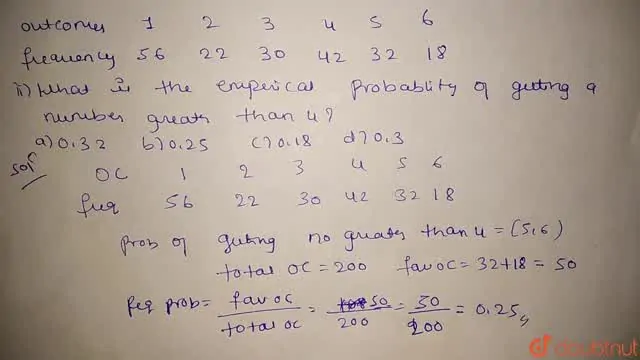 outcomes 1 2 3 4 5 6
frequency 56 22 30 42 32 18
ii) What is the emperical Probablity of getting a
number greater than 4?
a) 0.32 b) 0.25 c) 0.18 d) 0.3
Solⁿ OC 1 2 3 4 5 6
freq 56 22 30 42 32 18
Prob of getting no greater than 4 = (5,6)
total OC = 200 fav OC = 32+18 = 50
Req prob = fav OC / total OC = 50 / 200 = 50 / 200 = 0.25
doubtnut